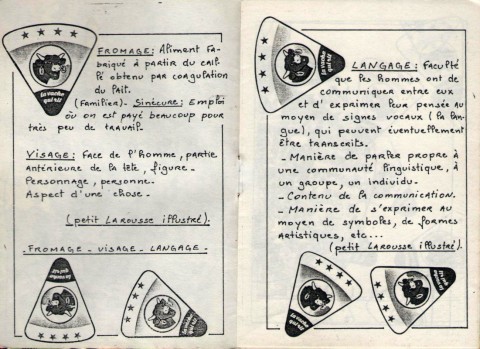 la vache
qui rit
FROMAGE: Aliment fa-
briqué à partir du cail-
lé obtenu par coagulation
du lait.
(Familier). Sinécure: Emploi
où on est payé beaucoup pour
très peu de travail.
VISAGE: Face de l'homme, partie
antérieure de la tête, figure.
Personnage, personne.
Aspect d'une chose.
(petit LAROUSSE illustré).
.FROMAGE_VISAGE_LANGAGE.
la vache
qui rit
la vache
qui rit
la vache
qui rit
LANGAGE: Faculté
que les hommes ont de
communiquer entre eux
et d'exprimer leur pensée au
moyen de signes vocaux (la lan-
gue), qui peuvent éventuellement
être transcrits.
_ Manière de parler propre à
une communauté linguistique, à
un groupe, un individu.
_ Contenu de la communication.
_ Manière de s'exprimer au
moyen de symboles, de formes
artistiques, etc...
(petit LAROUSSE illustré).
la vache
qui rit
la vache
qui rit